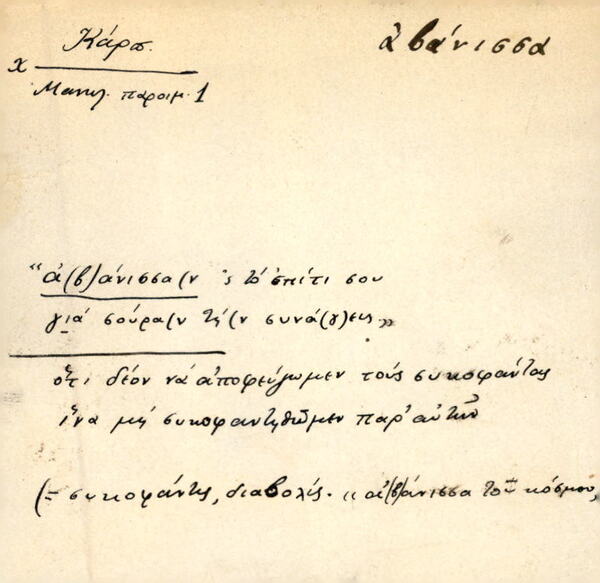 ἀβάνισσα
χ Κάρπ.
Μανωλ. παροιμ. 1
"ἀ(β)άνισσα(ν 'ς τὸ σπίτι σου
γιὰ σοῦρα(ν τὴ(ν συνά(γ)εις"
ὅτι δέον νὰ ἀποφεύγωμεν τοὺς συκοφάντας
ἵνα μὴ συκοφαντηθῶμεν παρ' αὐτῶν
(= συκοφάντης, διαβολής. "ἀ(β)άνισσα τοῦ κόσμου,